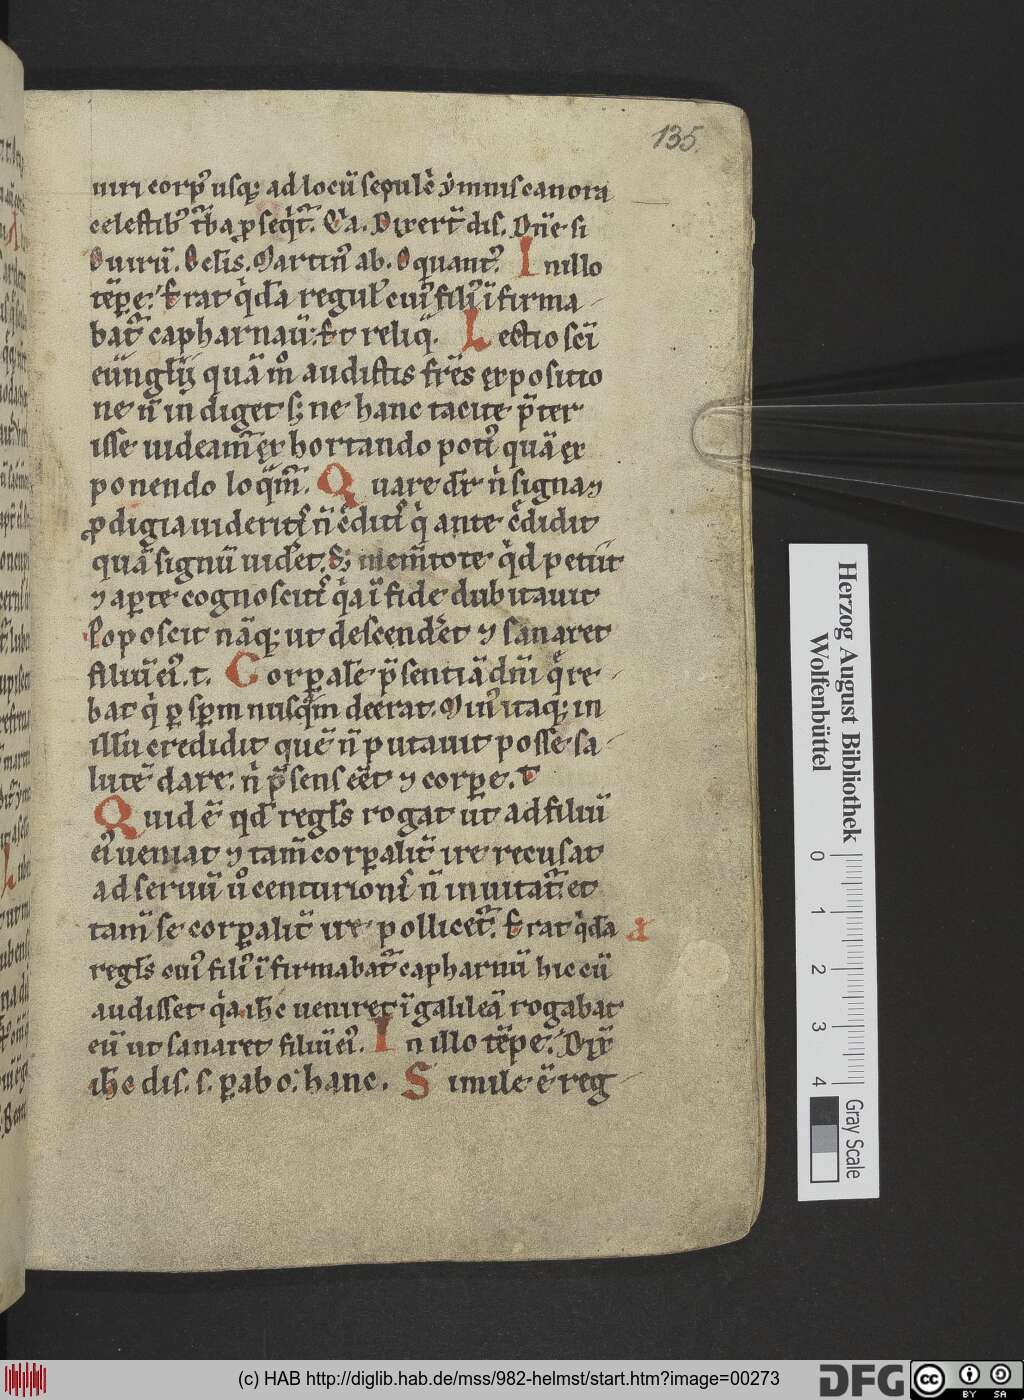 135.
uiri corpꝰ usq; ad locū sepulc̄ ẏmnis canora
celestibꝰ t̄ba p̱seqt̄. Eᷓa. Dixert̄ dis. Dn̄e si
O uirū. Oculis. Martinꝰ ab. O quant. I nillo
tēpe. Erat q̇da regul cuiꝰ filiꝰ īfirma
bat̄ capharnaū. Et reliq̄. L ectio sc̄i
eūnglii quā m̊ audistis fr̄es expositio
ne n̄ indiget s; ne hanc tacite p̄ter
isse uideam̄ exhortando potiꝰ quā ex
ponendo loq̄m̄. Q uare dr̄ n̄ signa ⁊
ꝓdigia uideritꝭ n̄ c̄ditꝭ q̇ ante c̄didit
quā signū uidet. S; mem̄tote q̇d petiit
⁊ aperte cognoscitꝭ q̇a ī fide dubitauit
Poposcit nāq; ut descendet ⁊ sanaret
filiū eiꝰ. t. C orꝑale p̄sentiā dn̄i q̄re
bat q̇ ꝑ sp̄m nusq̄m deerat. Minꝰ itaq; in
illū credidit quē n̄ putauit posse sa
lutē dare. n̄ p̄sens eēt ⁊ corpe. t
Q uid ē qd̄ reglꝰs rogat ut̄ ad filiū
eiꝰ ueniat ⁊ tam̄ corꝑalit̄ ire recusat
ad seruū ů centurionꝭ n̄ inuitat̄. et
tam̄ se corꝑalit̄ ire pollicet̄. Erat q̇da a
regls cuiꝰ filiꝰ īfirmabat̄ capharnū hic cū
audisset q̇a ih̄c ueniret ī galileā rogabat
eū ut sanaret filiū eiꝰ. I n illo tēpe. Dix̄
ih̄c dis. s. parabo. hanc. S imile ē reg
Herzog August Bibliothek
Wolfenbüttel
0 1 2 3 4
Gray Scale
(c) HAB http://diglib.hab.de/mss/982-helmst/start.htm?image=00273
DFG cc BY SA